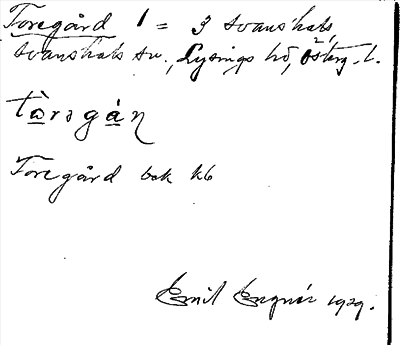 Toregård 1 = 3 Svanshals
Svanshals sn., Lysings hd, Österg. l.
tòrəgán
Toregård bek kb
Emil Engnér 1929.